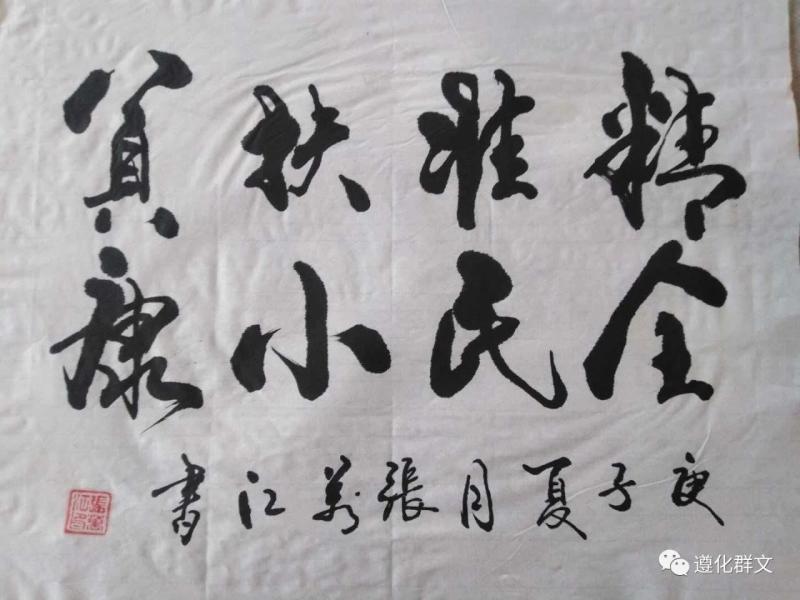 精准扶贫
全民小康
庚子夏月張万江書
遵化群文